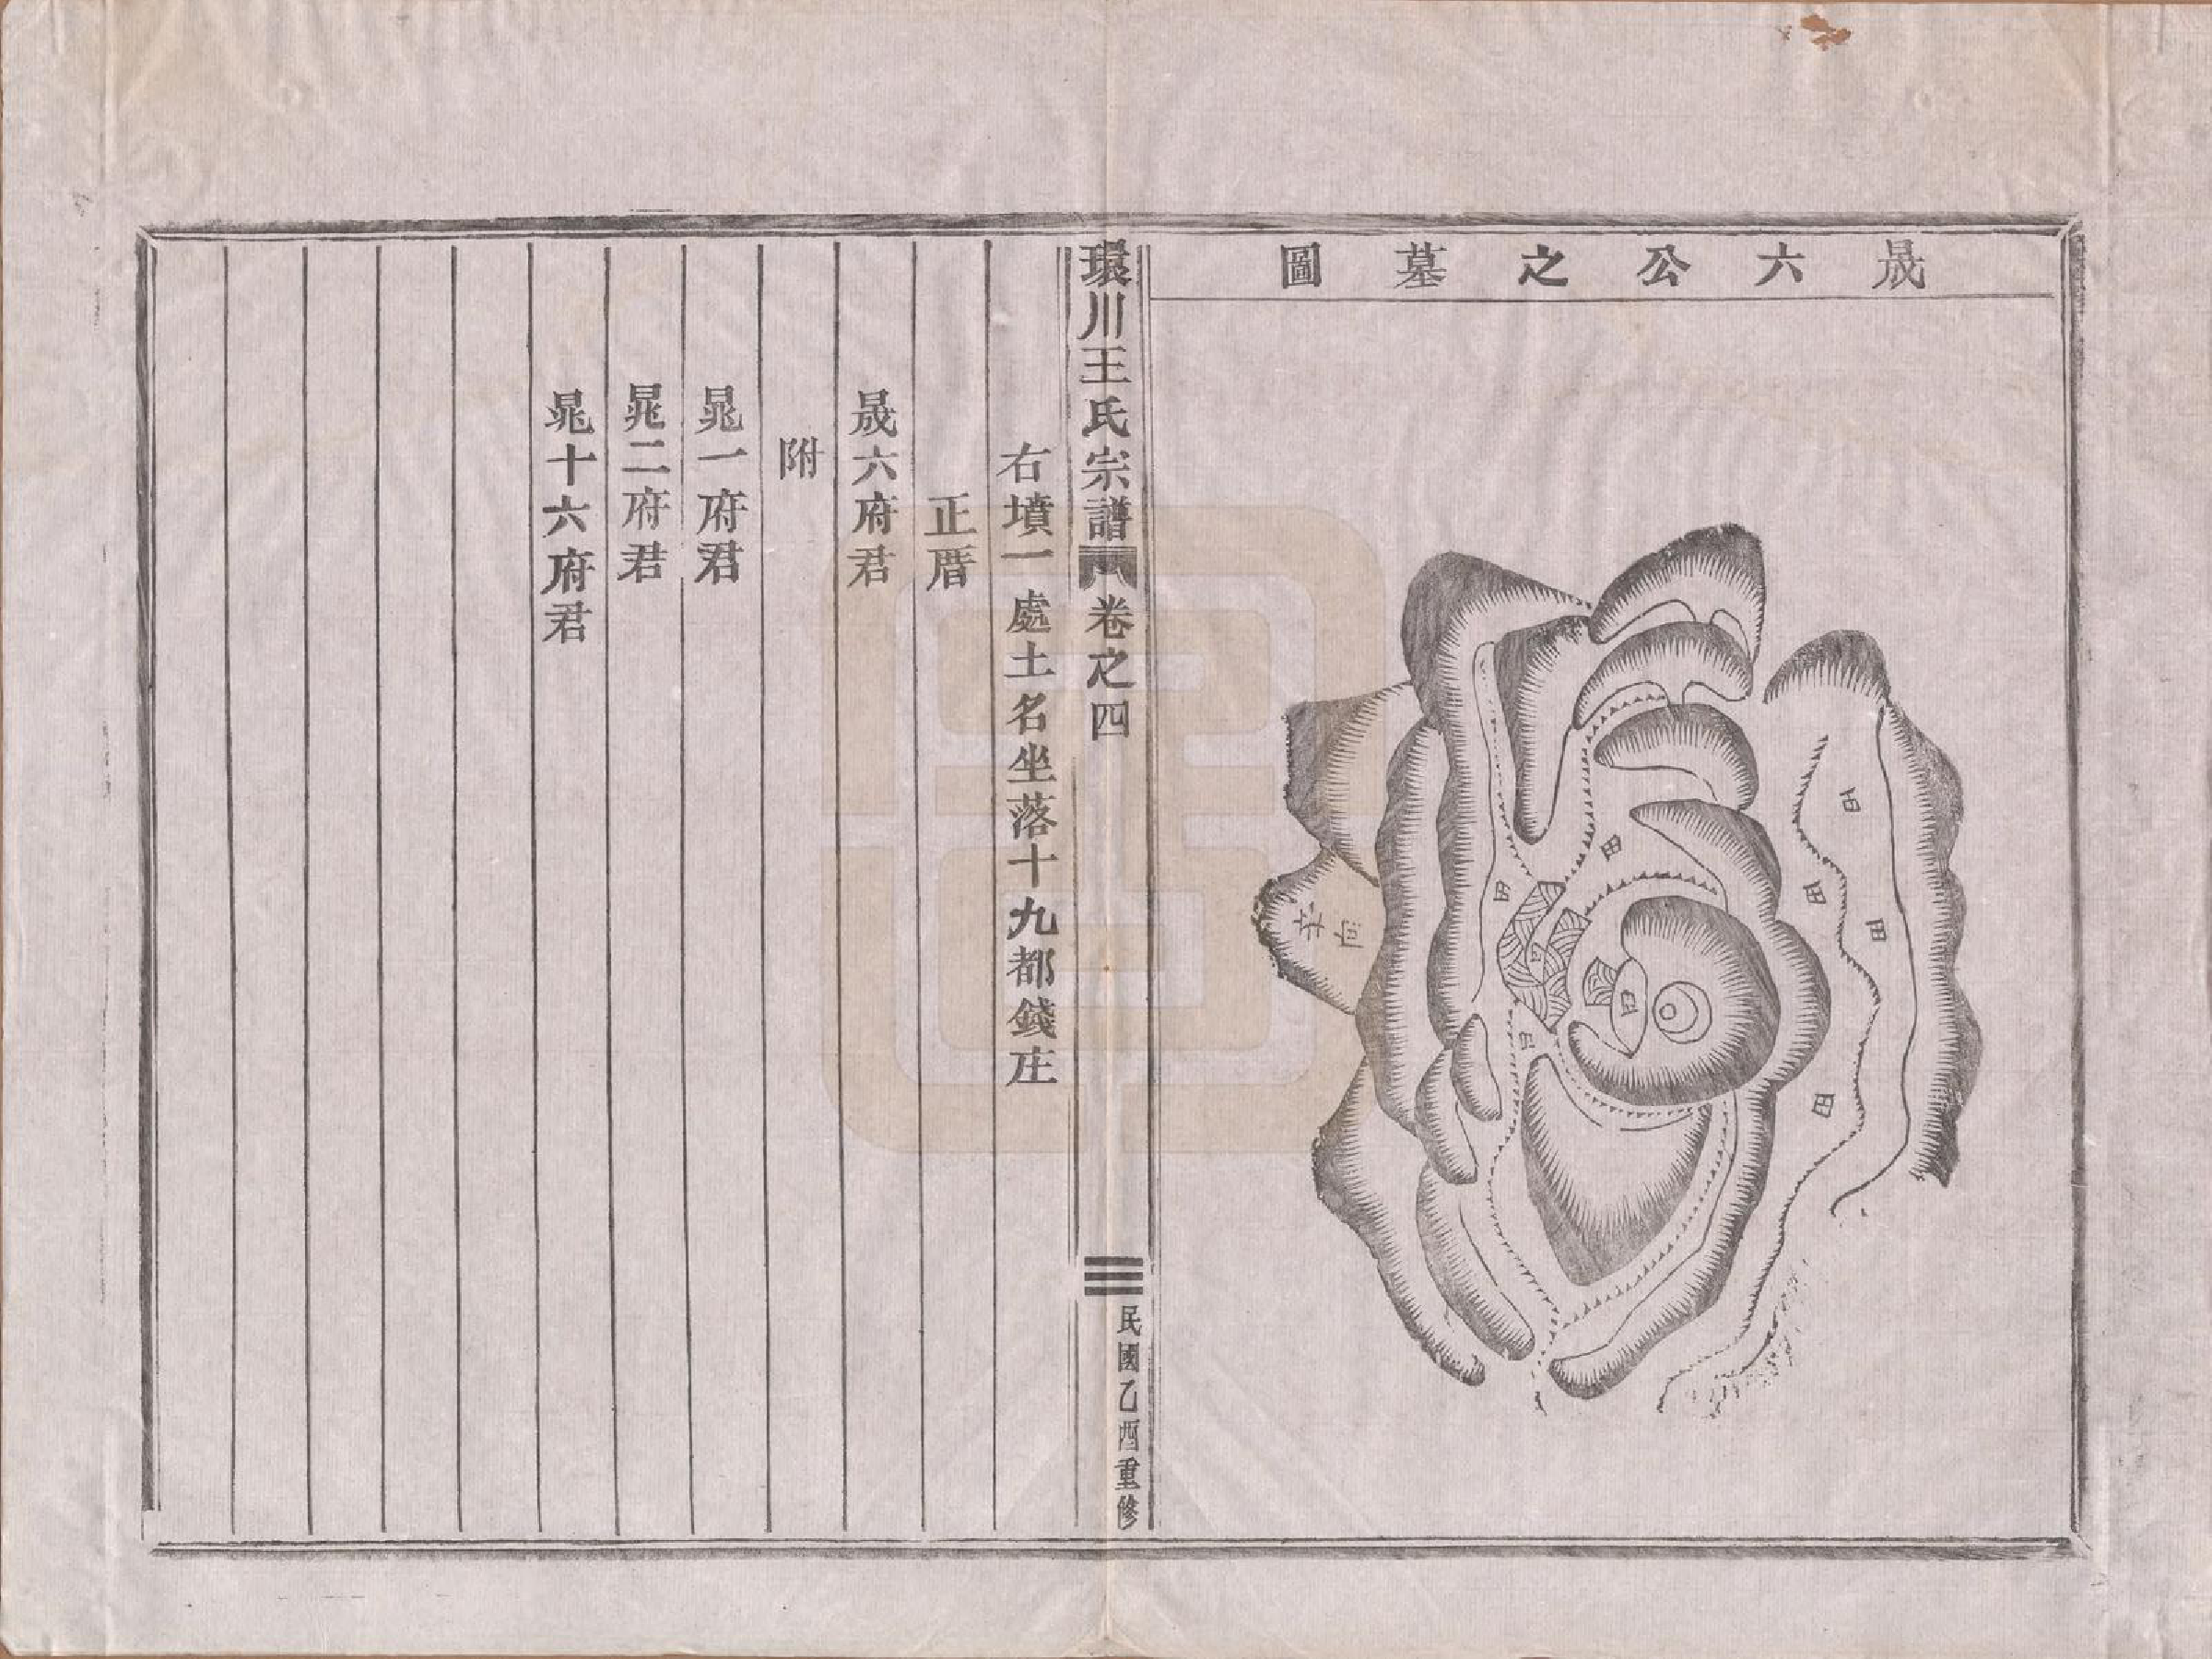 晟六公之墓圖
田
田
田
田
田
田
田
環川王氏宗譜
卷之四
三
民國乙酉重修
右墳一處土名坐落十九都錢庄
正厝
晟六府君
附
晁一府君
晁二府君
晁十六府君